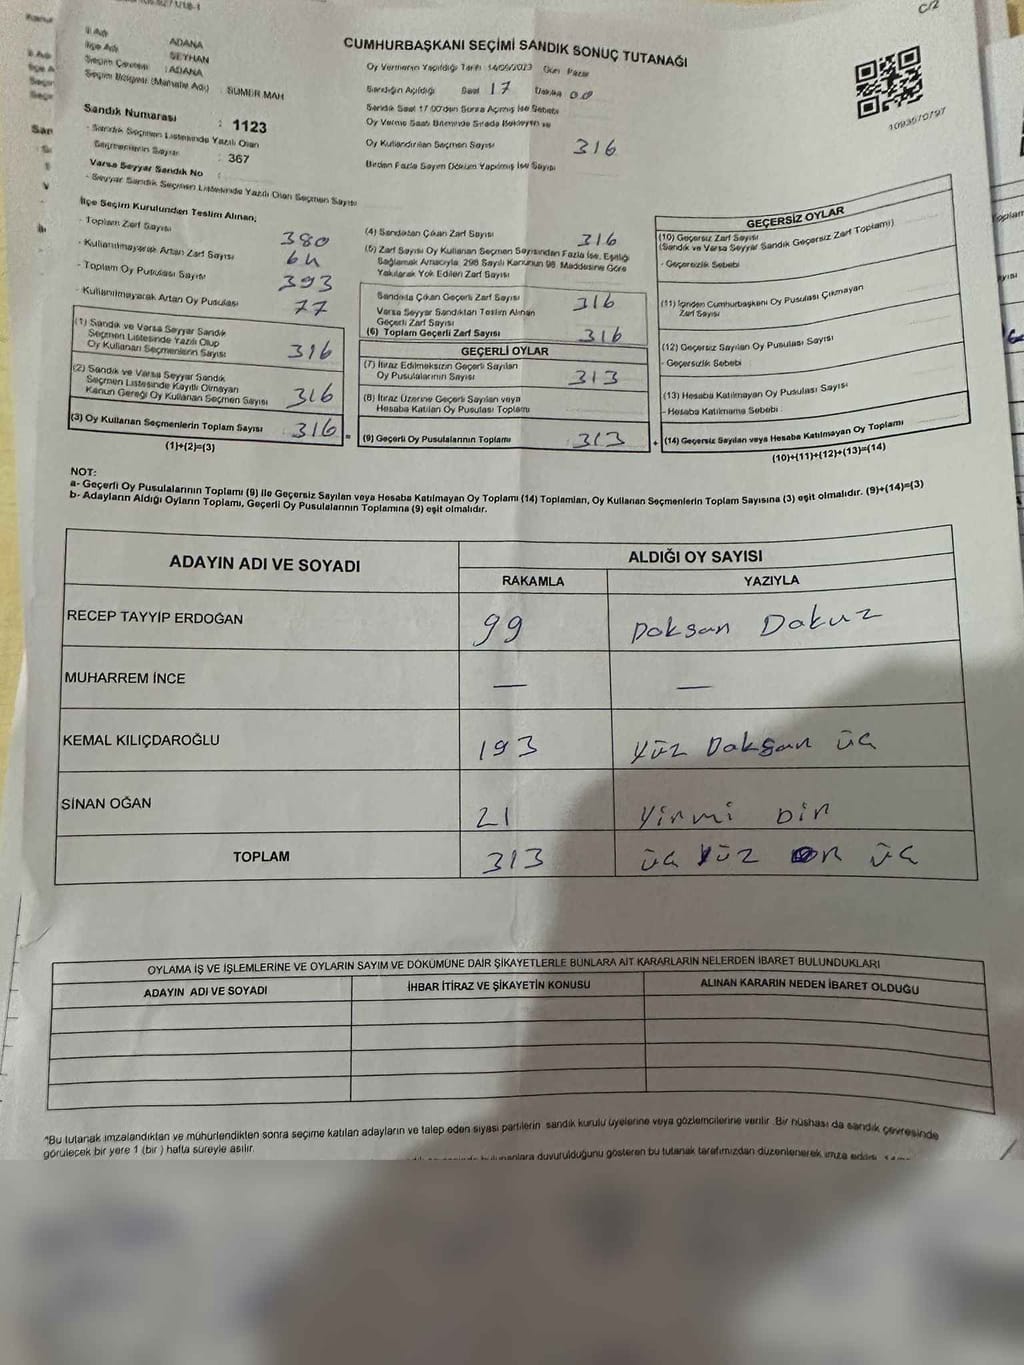 C/2
CUMHURBAŞKANI SEÇİMİ SANDIK SONUÇ TUTANAĞI
İl Adı ADANA
İlçe Adı SEYHAN
Seçim Çevresi : ADANA
Seçim Bölgesi (Mahalle Adı) : SUMER MAH
Sandık Numarası : 1123
- Sandık Seçmen Listesinde Yazılı Olan
Seçmenlerin Sayısı : 367
Varsa Seyyar Sandık No :
- Seyyar Sandık Seçmen Listesinde Yazılı Olan Seçmen Sayısı
Oy Vermenin Yapıldığı Tarih 14/05/2023 Gün Pazar
Sandığın Açıldığı Saat 17 Dakika 00
Sandık Saat 17.00'den Sonra Açılmış İse Sebebi
Oy Verme Saati Bitiminde Sırada Bekleyen ve
Oy Kullandırılan Seçmen Sayısı 316
Birden Fazla Sayım Döküm Yapılmış İse Sayısı
1093670797
İlçe Seçim Kurulundan Teslim Alınan;
- Toplam Zarf Sayısı 380
- Kullanılmayarak Artan Zarf Sayısı 64
- Toplam Oy Pusulası Sayısı 393
- Kullanılmayarak Artan Oy Pusulası 77
(1) Sandık ve Varsa Seyyar Sandık
Seçmen Listesinde Yazılı Olup
Oy Kullanan Seçmenlerin Sayısı 316
(2) Sandık ve Varsa Seyyar Sandık
Seçmen Listesinde Kayıtlı Olmayan
Kanun Gereği Oy Kullanan Seçmen Sayısı 316
(3) Oy Kullanan Seçmenlerin Toplam Sayısı 316
(1)+(2)=(3)
(4) Sandıktan Çıkan Zarf Sayısı 316
(5) Zarf Sayısı Oy Kullanan Seçmen Sayısından Fazla İse, Eşitliği
Sağlamak Amacıyla, 298 Sayılı Kanunun 98. Maddesine Göre
Yakılarak Yok Edilen Zarf Sayısı
Sandıkta Çıkan Geçerli Zarf Sayısı 316
Varsa Seyyar Sandıktan Teslim Alınan
Geçerli Zarf Sayısı
(6) Toplam Geçerli Zarf Sayısı 316
GEÇERLİ OYLAR
(7) İtiraz Edilmeksizin Geçerli Sayılan
Oy Pusulalarının Sayısı 313
(8) İtiraz Üzerine Geçerli Sayılan veya
Hesaba Katılan Oy Pusulası Toplamı
(9) Geçerli Oy Pusulalarının Toplamı 313
GEÇERSİZ OYLAR
(10) Geçersiz Zarf Sayısı
(Sandık ve Varsa Seyyar Sandık Geçersiz Zarf Toplamı)
- Geçersizlik Sebebi
(11) İçinden Cumhurbaşkanı Oy Pusulası Çıkmayan
Zarf Sayısı
(12) Geçersiz Sayılan Oy Pusulası Sayısı
- Geçersizlik Sebebi
(13) Hesaba Katılmayan Oy Pusulası Sayısı
- Hesaba Katılmama Sebebi
(14) Geçersiz Sayılan veya Hesaba Katılmayan Oy Toplamı
(10)+(11)+(12)+(13)=(14)
NOT:
a- Geçerli Oy Pusulalarının Toplamı (9) ile Geçersiz Sayılan veya Hesaba Katılmayan Oy Toplamı (14) Toplamları, Oy Kullanan Seçmenlerin Toplam Sayısına (3) eşit olmalıdır. (9)+(14)=(3)
b- Adayların Aldığı Oyların Toplamı, Geçerli Oy Pusulalarının Toplamına (9) eşit olmalıdır.
ADAYIN ADI VE SOYADI ALDIĞI OY SAYISI
RAKAMLA YAZIYLA
RECEP TAYYİP ERDOĞAN 99 Doksan Dokuz
MUHARREM İNCE — —
KEMAL KILIÇDAROĞLU 193 Yüz Doksan üç
SİNAN OĞAN 21 Yirmi bir
TOPLAM 313 üç Yüz on üç
OYLAMA İŞ VE İŞLEMLERİNE VE OYLARIN SAYIM VE DÖKÜMÜNE DAİR ŞİKAYETLERLE BUNLARA AİT KARARLARIN NELERDEN İBARET BULUNDUKLARI
ADAYIN ADI VE SOYADI İHBAR İTİRAZ VE ŞİKAYETİN KONUSU ALINAN KARARIN NEDEN İBARET OLDUĞU
"Bu tutanak imzalandıktan ve mühürlendikten sonra seçime katılan adayların ve talep eden siyasi partilerin sandık kurulu üyelerine veya gözlemcilerine verilir. Bir nüshası da sandık çevresinde
görülecek bir yere 1 (bir) hafta süreyle asılır.
bulunanlara duyurulduğunu gösteren bu tutanak tarafımızdan düzenlenerek imza edildi.